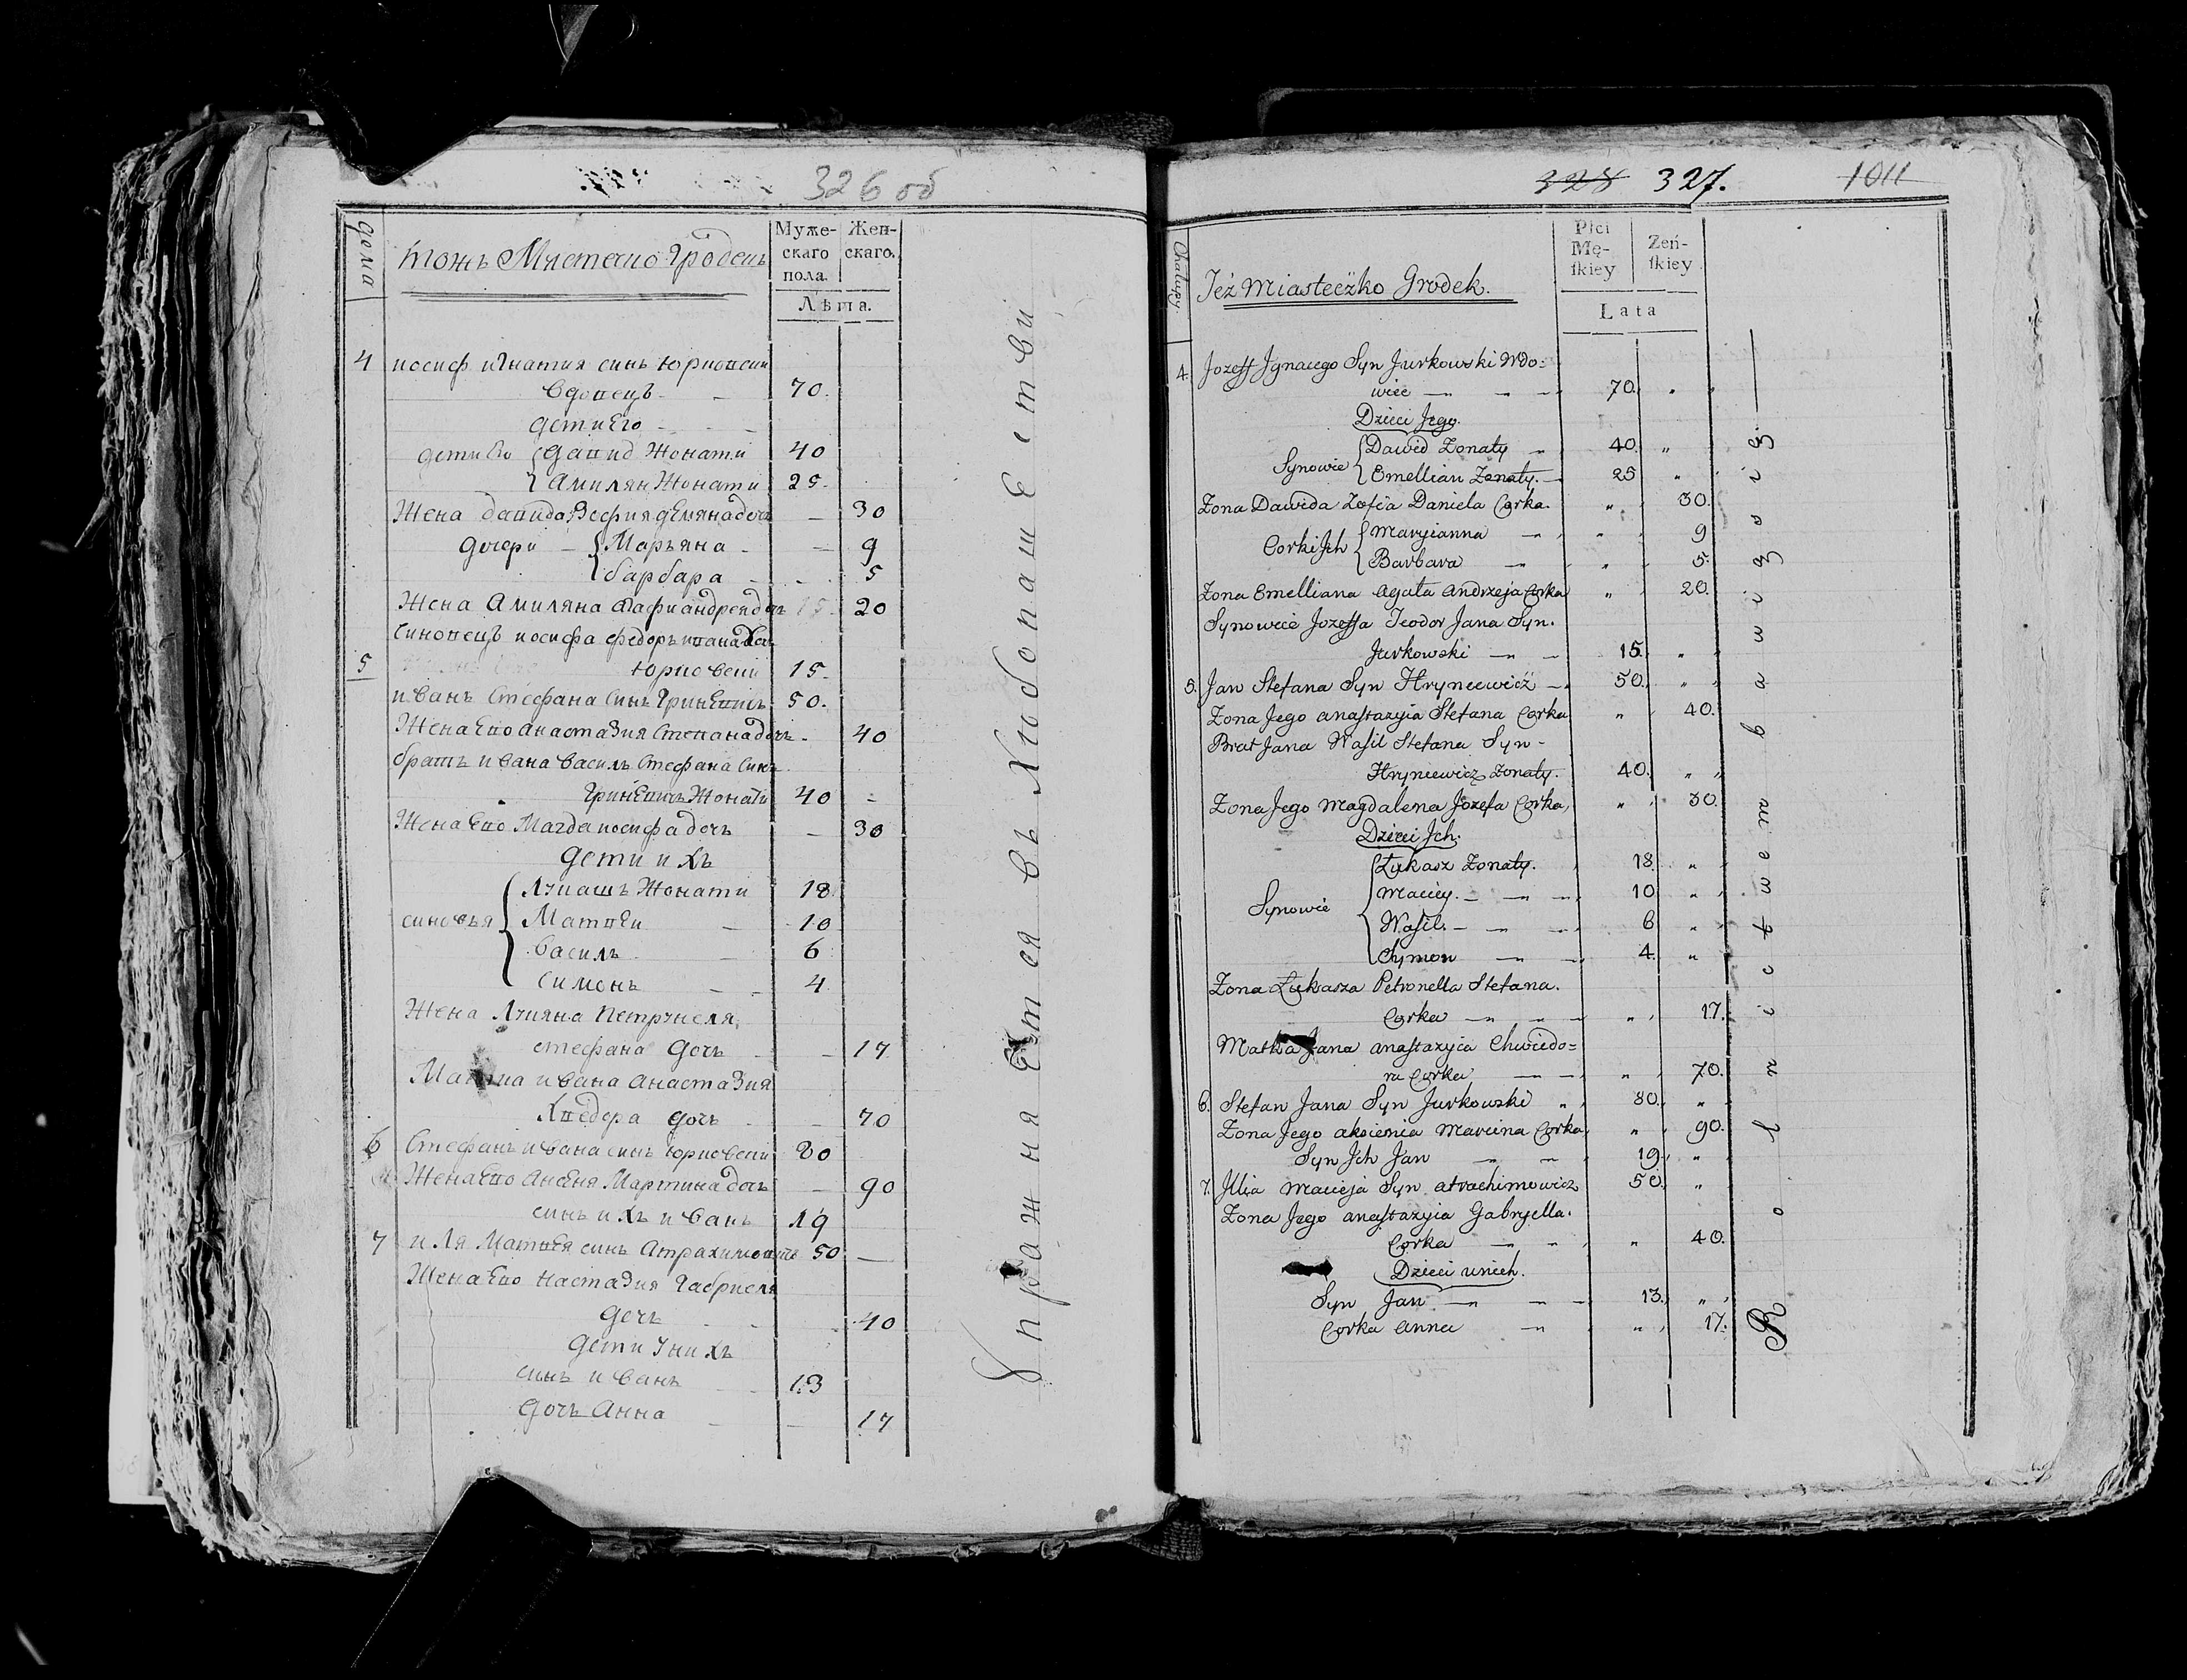 326 об
дома
тожъ Мястечко Гродекъ
Муже-
скаго
пола.
Жен-
скаго.
Лѣта.
4 иосиф игнатия синъ юрковски
вдовецъ - - 70.
дети Его - - -
дети Его { давид Жонати 40
{ Амилян Жонати 25.
Жена давида Зофия дЕмяна дочь — 30
дочери — { Марьяна - — 9
{ барбара - - 5
Жена Амиляна агафи андрея дочь 20
Синовецъ иосифа федоръ ивана Синъ
5 юрковски 15.
иванъ Стефана Синъ ГринЕвичъ 50.
Жена Его анастазия Степана дочь - 40
братъ ивана василь Стефана Синъ
ГринЕвичъ Жонати 40 -
Жена Его Магда иосифа дочь — 30
дети ихъ
синовья { Лукашъ Жонати 18
Матвеи — 10
василь — 6
симонъ — - 4
Жена Лукяна Петрунеля
стефана дочь - — 17
Матка ивана анастазия
Хведера дочь - — 70
6 Стефанъ ивана синъ юрковски 80
Жена Его Аксеня Мартина дочь — 90
синъ ихъ иванъ 19
7 иля Матвея синъ Атрахимовичъ 50 —
Жена Его настазия Габриеля
дочь - - 40
дети у нихъ
синъ иванъ - - 13
дочь Анна - — 17
УпражняЕтся въ ХлибопашЕстви
328 327. 1011
Chałupy.
Też Miasteczko Grodek.
Płci
Mę-
ſkiey
Zeń-
ſkiey
Lata
4. Jozeff Jgnacego Syn Jurkowski Wdo=
wiec — - — 70. „ „
Dzieci Jego.
Synowie { Dawid Zonaty „ 40. „
{ Emellian Zonaty. — 25 „ „
Zona Dawida Zofia Daniela Corka. „ 30.
Corki Jch { Maryianna — „ „ 9
{ Barbara — „ 5.
Zona Emelliana Agata Andrzeja Corka „ 20.
Synowiec Jozeffa Teodor Jana Syn.
Jurkowski — — 15. „ „
5. Jan Stefana Syn Hryncewicz —. 50. „ „
Zona Jego anaſtazyia Stefana Corka „ 40.
Brat Jana Waſil Stefana Syn -
Hryncewicz Zonaty. 40. „ „
Zona Jego Magdalena Jozefa Corka, „ 30.
Dzieci Jch.
Synowie { Łukasz Zonaty. 18. „
Maciey. — — — 10 „
Waſil. — — — 6 „
Symon — — 4. „
Zona Łukasza Petronella Stefana.
Corka — „ — „ 17.
Matka Jana anaſtazyia Chwiedo=
ra Corka — — „ 70.
6. Stefan Jana Syn Jurkowski „ 80. „
Zona Jego aksienia Marcina Corka, „ 90.
Syn Jch Jan — — 19. „
7. Illia Macieja Syn atrachimowicz 50. „
Zona Jego anaſtazyia Gabryella.
Corka — „ „ 40.
Dzieci unich.
Syn Jan — — 13. „
Corka Anna — „ 17.
Rolnictwem bawią się